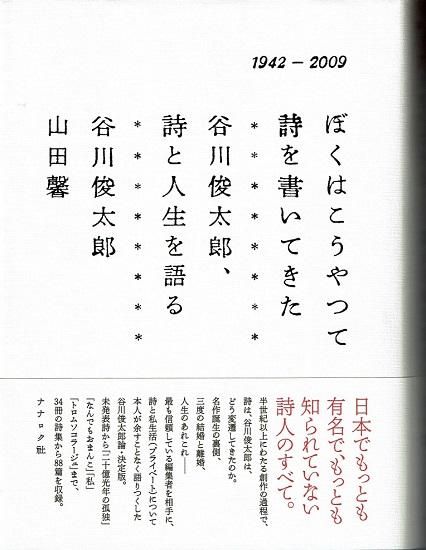 1942－2009
ぼくはこうやって
詩を書いてきた
＊＊＊＊＊＊＊＊＊
谷川俊太郎、
詩と人生を語る
＊＊＊＊＊＊＊＊＊
谷川俊太郎
山田馨
日本でもっとも
有名で、もっとも
知られていない
詩人のすべて。
半世紀以上にわたる創作の過程で、
詩は、谷川俊太郎は、
どう変遷してきたのか。
名作誕生の裏側、
三度の結婚と離婚、
人生のあれこれ――
最も信頼している編集者を相手に、
詩と私生活（プライベート）について
本人が余すことなく語りつくした
谷川俊太郎論・決定版。
未発表詩から「二十億光年の孤独」
「なんでもおまんこ」「私」
「トロムソコラージュ」まで、
34冊の詩集から88篇を収録。
ナナロク社